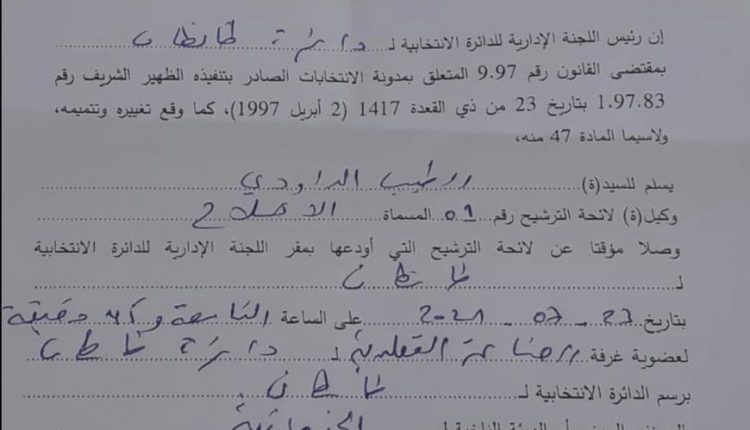 إن رئيس اللجنة الإدارية للدائرة الانتخابية لـ دائرة طانطان
بمقتضى القانون رقم 9.97 المتعلق بمدونة الانتخابات الصادر بتنفيذه الظهير الشريف رقم
1.97.83 بتاريخ 23 من ذي القعدة 1417 (2 أبريل 1997)، كما وقع تغييره وتتميمه،
ولاسيما المادة 47 منه،
يسلم للسيد(ة) الطيب الداودي
وكيل(ة) لائحة الترشيح رقم 01 المسماة الاصلاح
وصلا مؤقتا عن لائحة الترشيح التي أودعها بمقر اللجنة الإدارية للدائرة الانتخابية
لـ طانطان
بتاريخ 23 - 07 - 2021 على الساعة التاسعة و دقيقة
لعضوية غرفة الصناعة التقليدية لـ دائرة طانطان
برسم الدائرة الانتخابية لـ طانطان